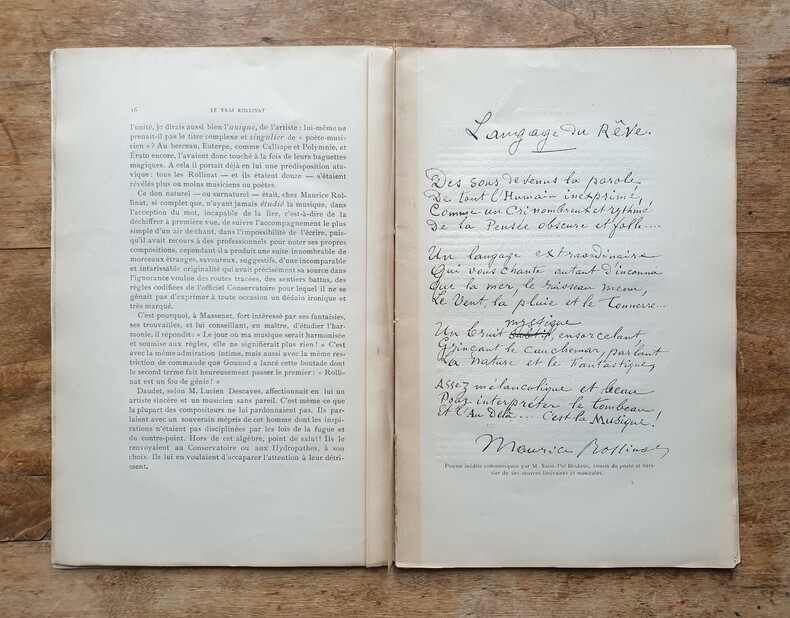 16
LE VRAI ROLLINAT
l'unité, je dirais aussi bien l'unique, de l'artiste : lui-même ne
prenait-il pas le titre complexe et singulier de « poète-musi-
cien » ? Au berceau, Euterpe, comme Calliope et Polymnie, et
Erato encore, l'avaient donc touché à la fois de leurs baguettes
magiques. A cela il portait déjà en lui une prédisposition ata-
vique : tous les Rollinat — et ils étaient douze — s'étaient
révélés plus ou moins musiciens ou poètes.
Ce don naturel — ou surnaturel — était, chez Maurice Rol-
linat, si complet que, n'ayant jamais étudié la musique, dans
l'acception du mot, incapable de la lire, c'est-à-dire de la
déchiffrer à première vue, de suivre l'accompagnement le plus
simple d'un air de chant, dans l'impossibilité de l'écrire, puis-
qu'il avait recours à des professionnels pour noter ses propres
compositions, cependant il a produit une suite innombrable de
morceaux étranges, savoureux, suggestifs, d'une incomparable
et intarissable originalité qui avait précisément sa source dans
l'ignorance voulue des routes tracées, des sentiers battus, des
règles codifiées de l'officiel Conservatoire pour lequel il ne se
gênait pas d'exprimer à toute occasion un dédain ironique et
très marqué.
C'est pourquoi, à Massenet, fort intéressé par ses fantaisies,
ses trouvailles, et lui conseillant, en maître, d'étudier l'har-
monie, il répondit : « Le jour où ma musique serait harmonisée
et soumise aux règles, elle ne signifierait plus rien ! » C'est
avec la même admiration intime, mais aussi avec la même res-
triction de commande que Gounod a lancé cette boutade dont
le second terme fait heureusement passer le premier : « Rolli-
nat est un fou de génie ! »
Daudet, selon M. Lucien Descaves, affectionnait en lui un
artiste sincère et un musicien sans pareil. C'est même ce que
la plupart des compositeurs ne lui pardonnaient pas. Ils par-
laient avec un souverain mépris de cet homme dont les inspi-
rations n'étaient pas disciplinées par les lois de la fugue et
du contre-point. Hors de cet algèbre, point de salut ! Ils le
renvoyaient au Conservatoire ou aux Hydropathes, à son
choix. Ils lui en voulaient d'accaparer l'attention à leur détri-
ment.
Langage du Rêve.
Des sons devenus la parole
De tout l'Humain inexprimé,
Comme un Cri nombreux et rythmé
De la Pensée obscure et folle....
Un langage extraordinaire
Qui vous chante autant d'inconnu
Que la mer, le ruisseau menu,
Le Vent, la pluie et le Tonnerre...
mystique
Un bruit ensorcelant,
Grinçant le cauchemar, parlant
La Nature et le Fantastique,
Assez mélancolique et beau
Pour interpréter le tombeau
Et l'Au Delà.... C'est la Musique !
Maurice Rollinat
Poésie inédite communiquée par M. Saint-Pol Bridoux, cousin du poète et héri-
tier de ses œuvres littéraires et musicales.